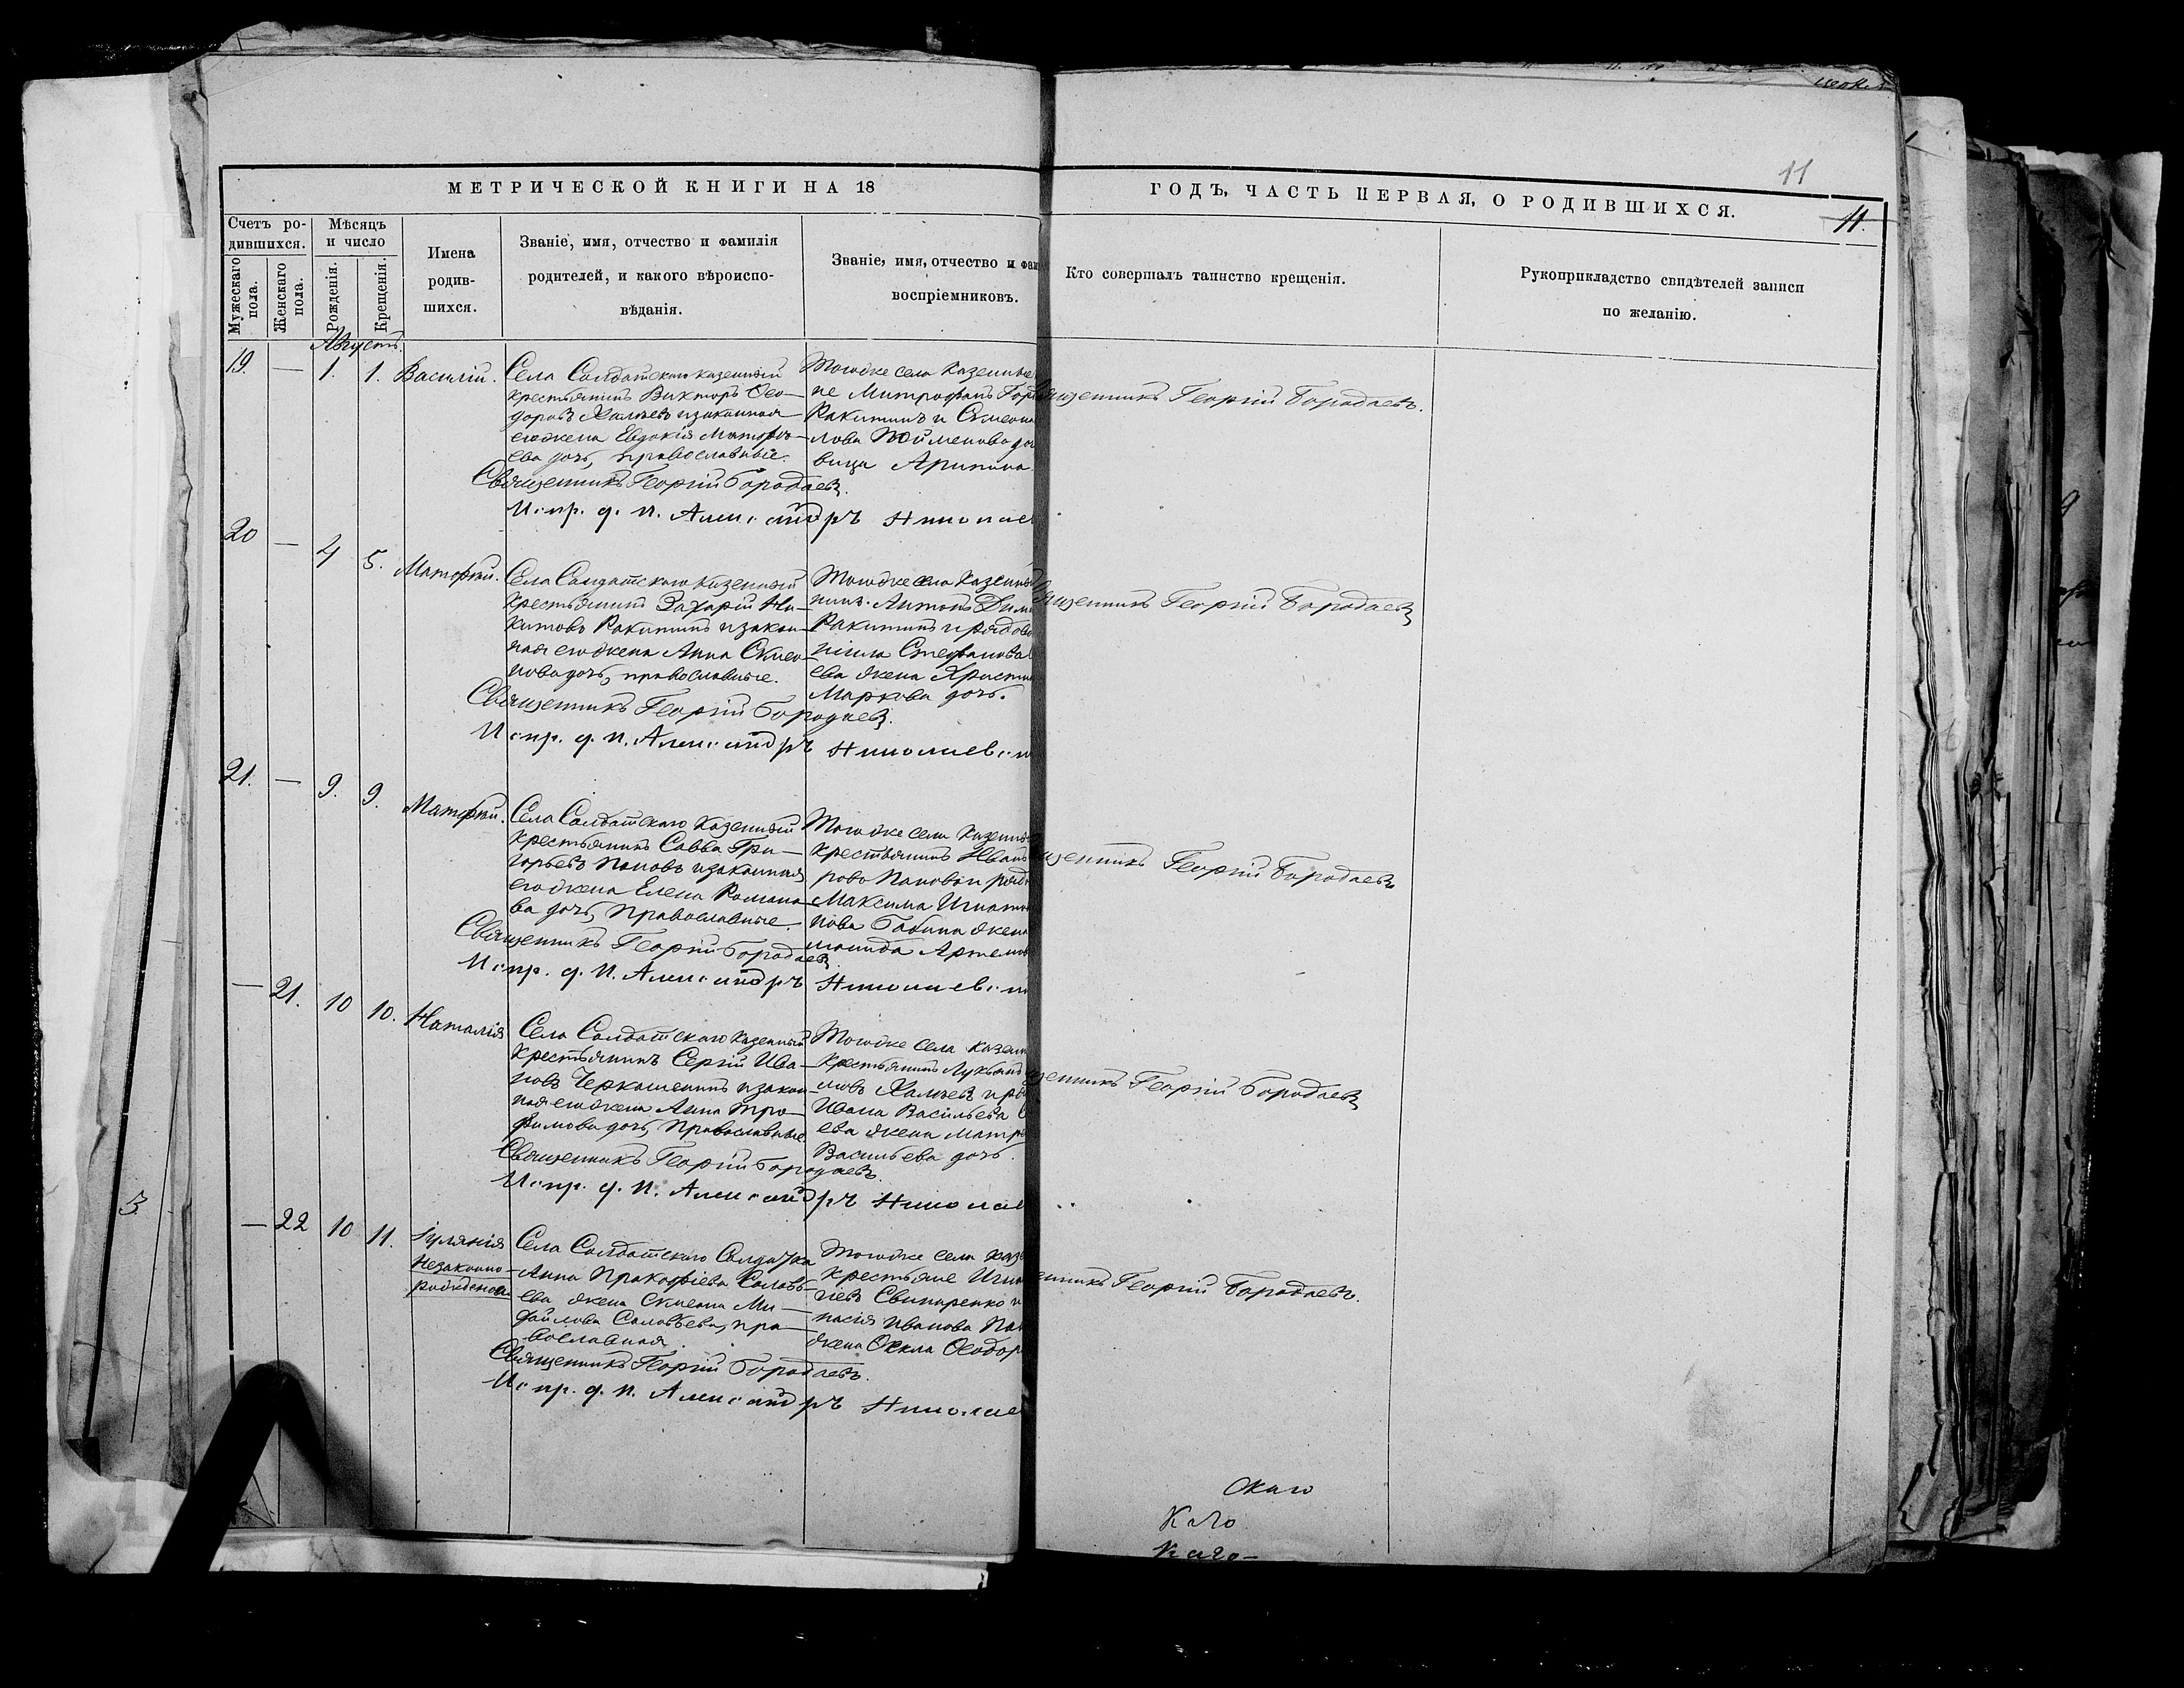 церк
11
МЕТРИЧЕСКОЙ КНИГИ НА 18
ГОДЪ, ЧАСТЬ ПЕРВАЯ, О РОДИВШИХСЯ.
11.
Счетъ ро-
дившихся.
Мужескаго пола.
Женскаго пола.
Мѣсяцъ
и число
Рожденія.
Крещенія.
Имена
родив-
шихся.
Званіе, имя, отчество и фамилія
родителей, и какого вѣроиспо-
вѣданія.
Званіе, имя, отчество и фам
воспріемниковъ.
Кто совершалъ таинство крещенія.
Рукоприкладство свидѣтелей записи
по желанію.
Августъ.
19. — 1. 1. Василій.
Села Солдатскаго казенный
крестьянинъ Викторъ Ѳео-
доровъ Халѣевъ и законная
его жена Евдокія Матѳѣ-
ева дочь, православные.
Священникъ Георгій Бородаевъ.
Испр. д. п. Александръ Николаев
Тогоже села казенные
не Митрофанъ
Ракитинъ и Симеона
лова Пойменова до
вица Арипина
Священникъ Георгій Бородаевъ.
20 — 4 5. Матѳѣй.
Села Солдатскаго казенный
крестьянинъ Захарій Ни-
китовъ Ракитинъ и закон-
ная его жена Анна Симео-
нова дочь, православные.
Священникъ Георгій Бородаевъ.
Испр. д. п. Александръ Николаевск
Тогоже села казенный
нинъ Антонъ Дим
Ракитинъ и рядово
ила Стефанова
ева жена Христин
Маркова дочь.
ященникъ Георгій Бородаевъ
21. — 9. 9. Матѳѣй.
Села Солдатскаго казенный
крестьянинъ Савва Гри-
горьевъ Поповъ и законная
его жена Елена Романо-
ва дочь, православные.
Священникъ Георгій Бородаевъ
Испр. д. п. Александръ Николаевск
Тогоже села казенный
крестьянинъ Иванъ
ровъ Поповъ и рядо
Максима Игнат
нова Бабина жена
манида Артемо
щенникъ Георгій Бородаевъ
— 21. 10 10. Наталія
Села Солдатскаго казенный
крестьянинъ Сергій Ива-
новъ Черкашенинъ и закон-
ная его жена Анна Тро-
фимова дочь, православные.
Священникъ Георгій Бородаевъ.
Испр. д. п. Александръ Николае
Тогоже села казен
крестьянинъ Лукьянъ
ловъ Халѣевъ и ря
Ивана Васильева
ева жена Матр
Васильева дочь.
щенникъ Георгій Бородаевъ
— 22 10 11. Іулянія
незаконно-
рожденная
Села Солдатскаго Солдатка
Анна Прокофіева Соловь-
ева жена Симеона Ми-
хайлова Соловьева, пра-
вославная.
Священникъ Георгій Бородаевъ.
Испр. д. п. Александръ Николае
Тогоже села каз
крестьяне Игна
іевъ Свинаренко и
насія Иванова По
жена Ѳекла Ѳеодор
енникъ Георгій Бородаевъ.
3
скаго
каго
каго-